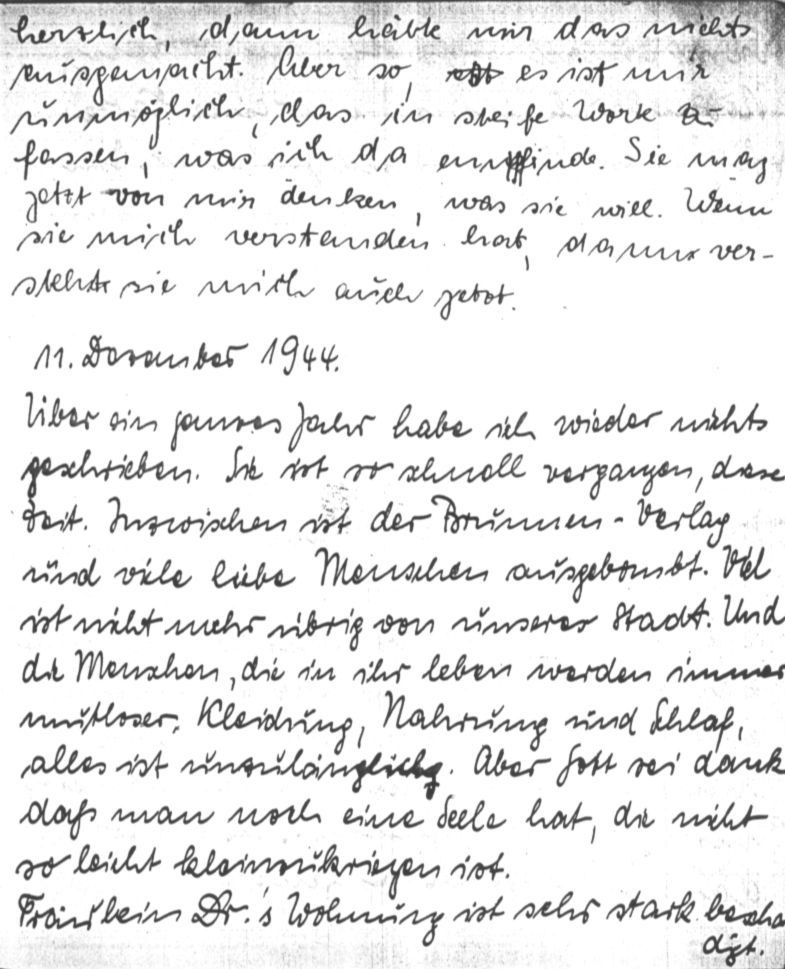 herzlich, dann hätte mir das nichts
ausgemacht. Aber so, es ist mir
unmöglich, das in steife Worte zu
fassen, was ich da empfinde. Sie mag
jetzt von mir denken, was sie will. Wenn
sie mich verstanden hat, dann ver-
steht sie mich auch jetzt.
11. Dezember 1944.
Über ein ganzes Jahr habe ich wieder nichts
geschrieben. Sie ist so schnell vergangen, diese
Zeit. Inzwischen ist der Brunnen-Verlag
und viele liebe Menschen ausgebombt. Viel
ist nicht mehr übrig von unserer Stadt. Und
die Menschen, die in ihr leben werden immer
mutloser. Kleidung, Nahrung und Schlaf,
alles ist unzulänglich. Aber Gott sei dank
daß man noch eine Seele hat, die nicht
so leicht kleinzukriegen ist.
Fräulein Dr.'s Wohnung ist sehr stark beschä
digt.